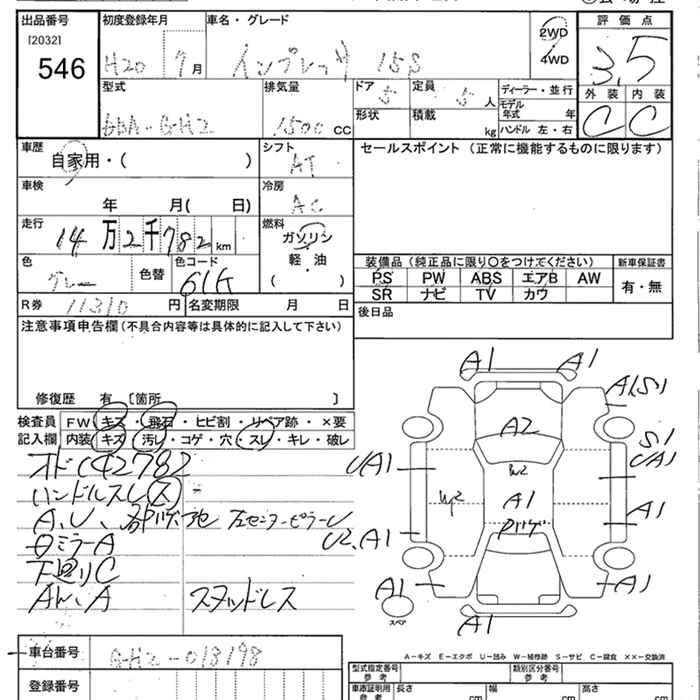 出品番号 初度登録年月 車名・グレード 評価点
[2032]
546 H20 7月 インプレッサ 15S 2WD 3.5
4WD
型式 排気量 ドア 定員 ディーラー・並行 外装 内装
GBA-GH2 1500cc 5 5人 モデル年式 年 C C
形状 積載 kg ハンドル 左・右
車歴 シフト セールスポイント(正常に機能するものに限ります)
自家用・( ) AT
車検 冷房
年 月( 日) AC
走行 燃料
14万2千782km ガソリン
軽・油
( )
装備品(純正品に限り○をつけてください) 新車保証書
色 色替 色コード PS PW ABS エアB AW 有・無
グレー 61G SR ナビ TV カワ
R券 11310円 名変期限 月 日 後日品
注意事項申告欄(不具合内容等は具体的に記入して下さい)
修復歴 有 [箇所 ]
検査員 FW キズ・飛石・ヒビ割・リペア跡・×要
記入欄 内装 キズ・汚レ・コゲ・穴・スレ・キレ・破レ
オド142782
ハンドルスレ
A、U、 左センターピラーU
ミラーA
下廻りC
A スタッドレス
A1 A1
A1(S1)
A2
S1
UA1 UA1
W2
W2 A1 A1
U2、A1
A1 A1
A1
スペア
A-キズ E-エクボ U-凹み W-補修跡 S-サビ C-腐食 ××-交換済
車台番号 GH2-018198
登録番号
型式指定番号 参考 類別区分番号 参考
車庫証明用 参考 長さ cm 幅 cm 高さ cm